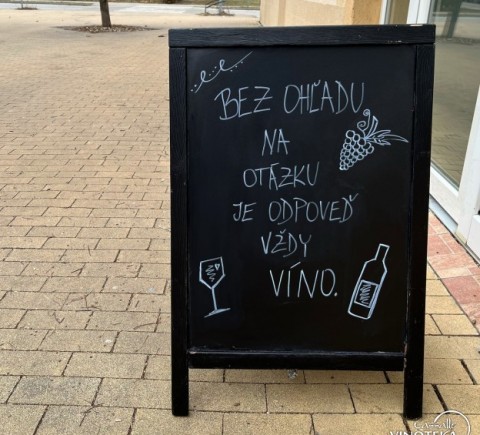 BEZ OHĽADU
NA
OTÁZKU
JE ODPOVEĎ
VŽDY
VÍNO.
VINOTEKA